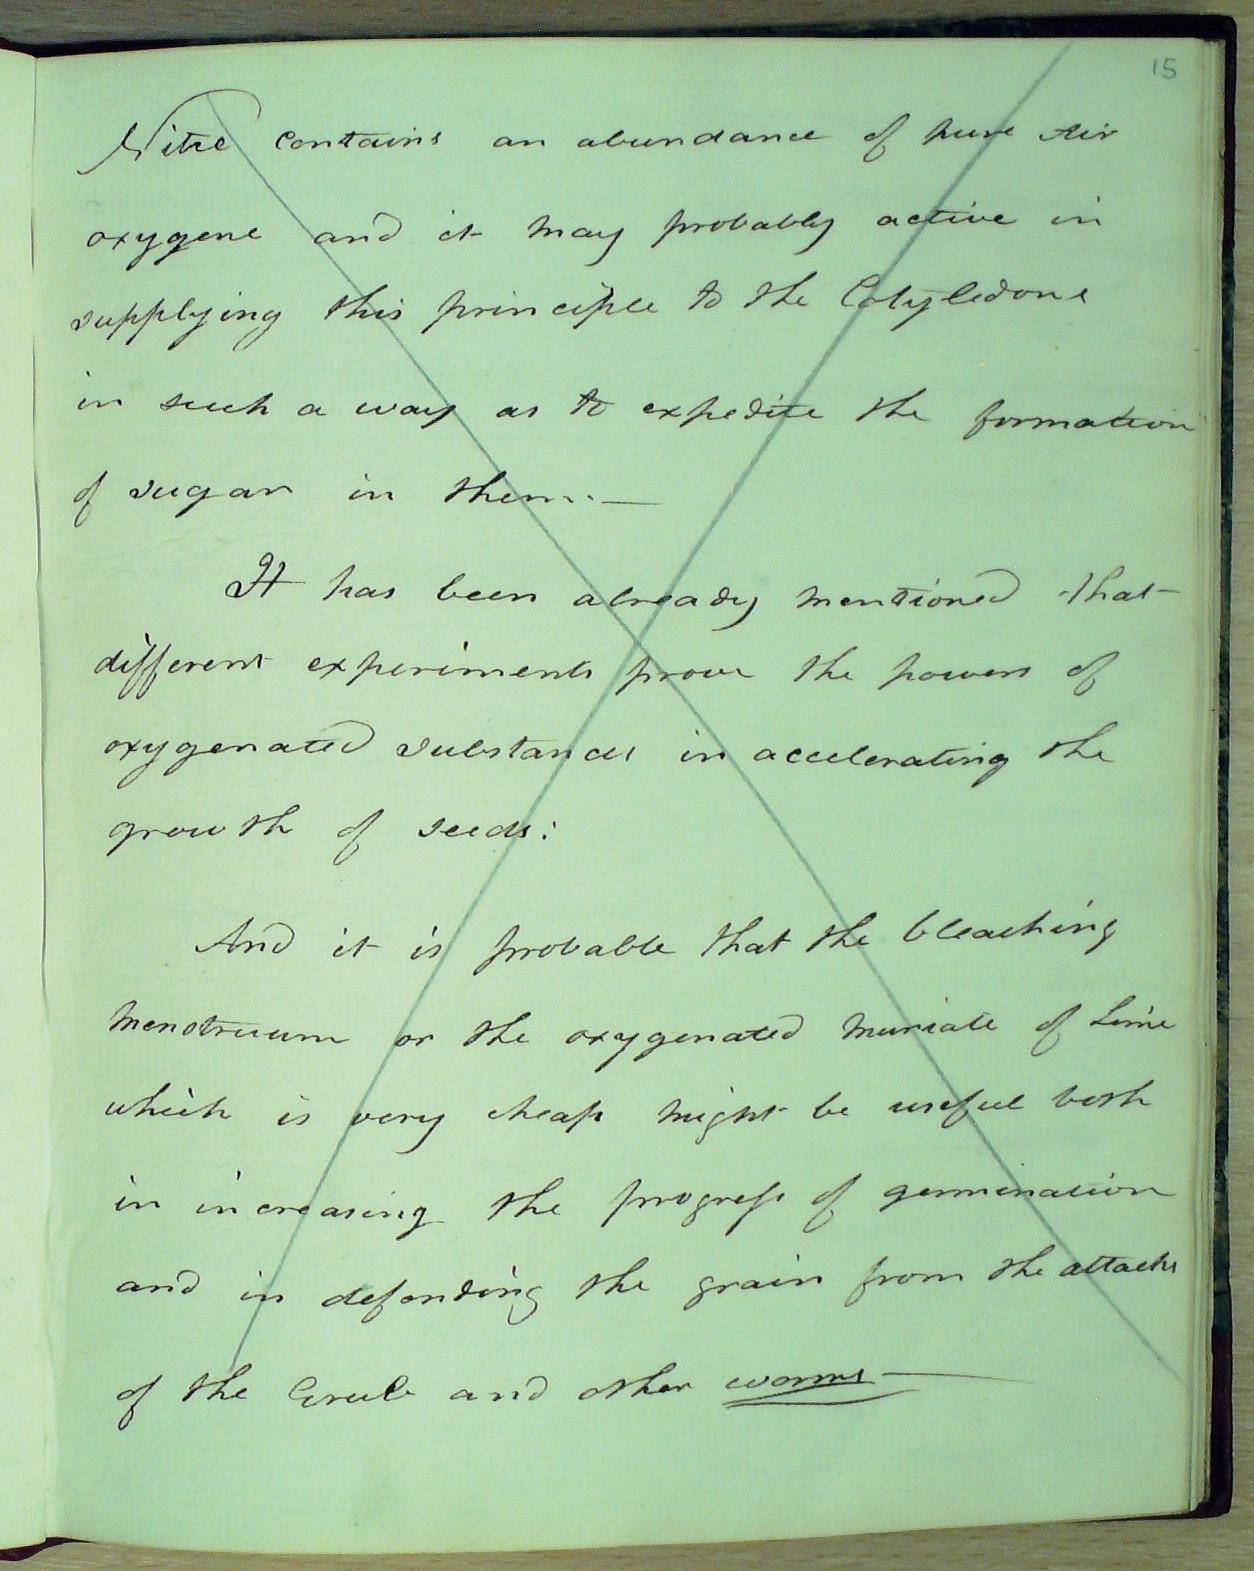 15
Nitre contains an abundance of pure Air
oxygene and it may probably active in
supplying this principle to the Cotyledons
in such a way as to expedite the formation
of sugar in them. —
It has been already mentioned that
different experiments prove the powers of
oxygenated substances in accelerating the
growth of seeds:
And it is probable that the bleaching
menstruum or the oxygenated muriate of lime
which is very cheap might be useful both
in increasing the progress of germination
and in defending the grain from the attacks
of the Grub and other worms —